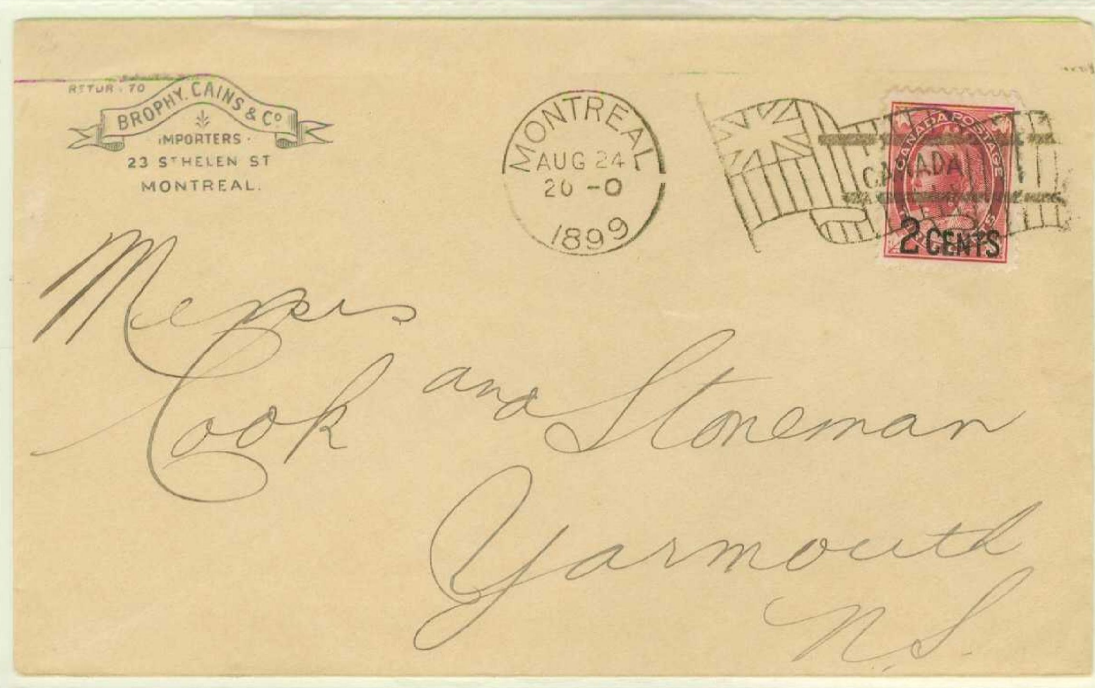 RETURN TO
BROPHY. CAINS & Co
IMPORTERS
23 ST HELEN ST
MONTREAL.
MONTREAL
AUG 24
20 - 0
1899
CANADA
CANADA POSTAGE
2 CENTS
Messrs
Cook and Stoneman
Yarmouth
N.S.